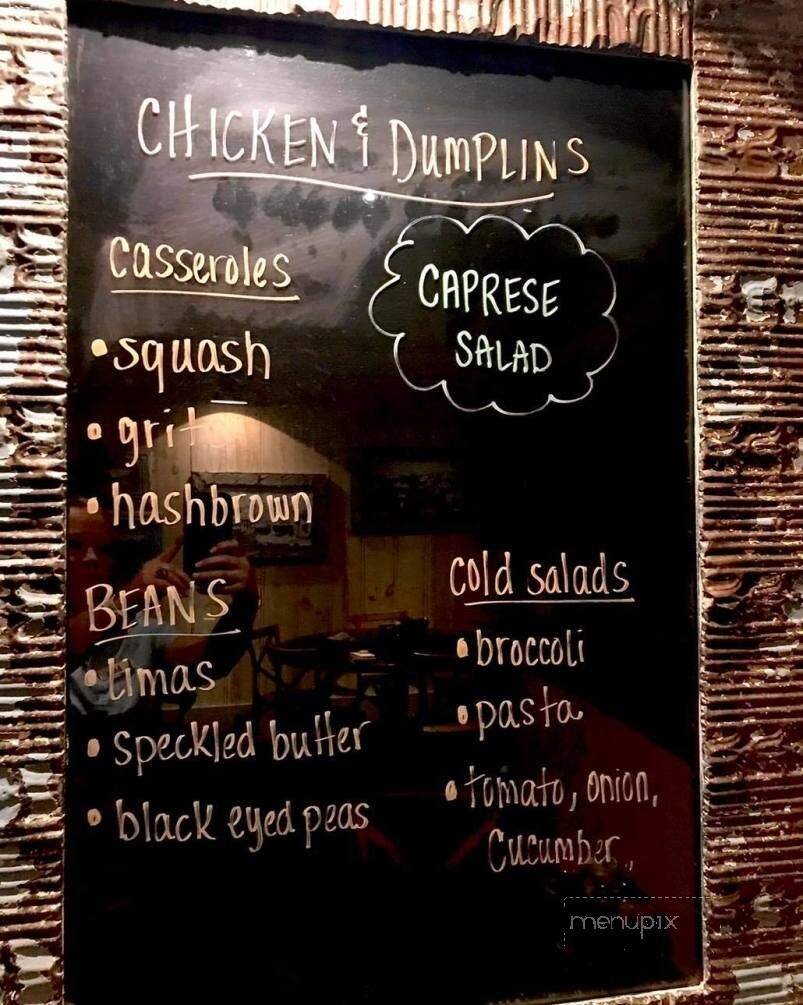 CHICKEN & DUMPLINS
CAPRESE
SALAD
Casseroles
• squash
• grit
• hashbrown
BEANS
• limas
• speckled butter
• black eyed peas
Cold salads
• broccoli
• pasta
• tomato, onion,
Cucumber..
menupix